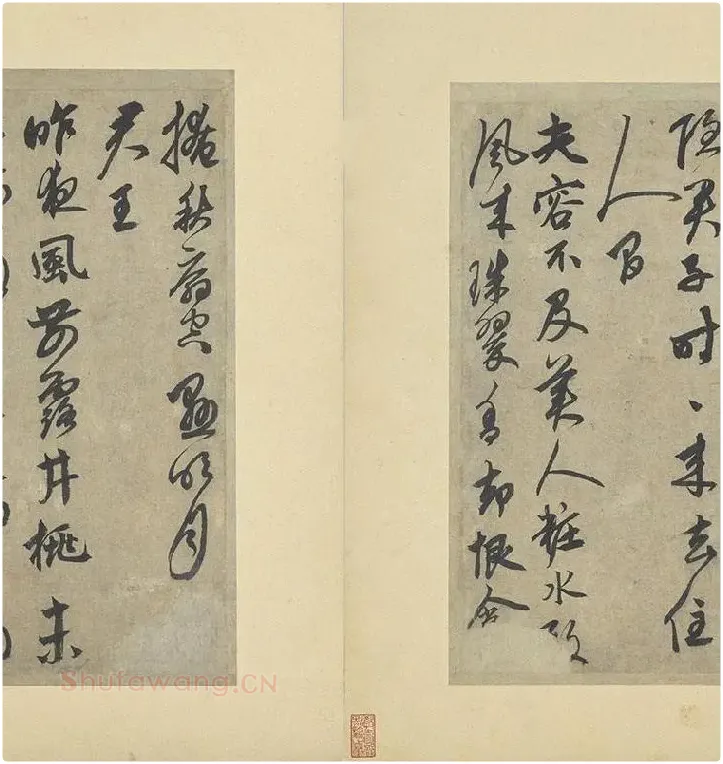 隐君子时〻来去住
人间
夫容不及美人粧水殿
風来珠翠香却恨含
掩秋扇空懸明月
君王
昨夜風開露井桃未
Shufawang.CN